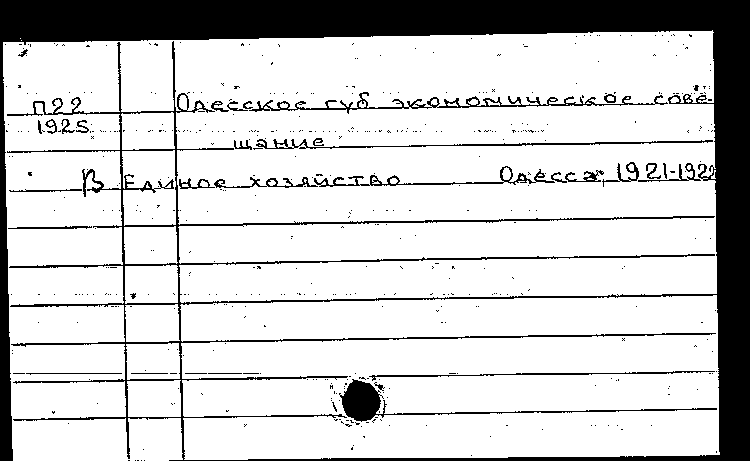 П22 Одесское губ экономическое сове-
1925
щание
В Единое хозяйство Одесса, 1921-1922